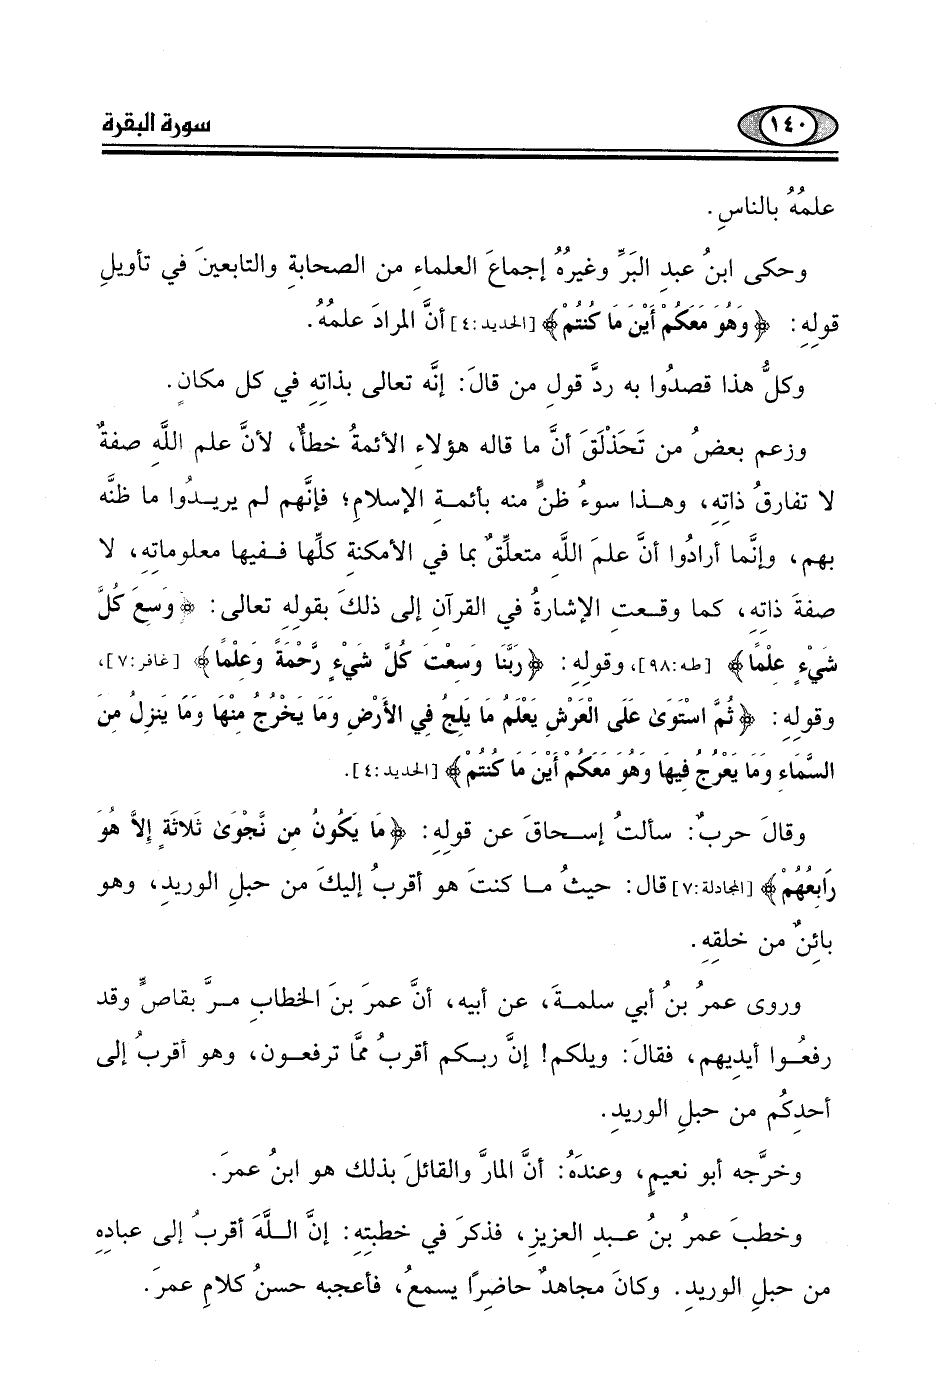 ١٤٠
سورة البقرة
علمُهُ بالناسِ.
وحكى ابنُ عبدِ البَرِّ وغيرُهُ إجماعَ العلماءِ من الصحابةِ والتابعينَ في تأويلِ
قولِهِ: ﴿وَهُوَ مَعَكُمْ أَيْنَ مَا كُنتُمْ﴾ [الحديد:٤] أنَّ المرادَ علمُهُ.
وكلُّ هذا قصدُوا به ردَّ قولِ من قالَ: إنَّه تعالى بذاتِهِ في كل مكانٍ.
وزعم بعضُ من تَحَذْلَقَ أنَّ ما قاله هؤلاءِ الأئمةُ خطأٌ، لأنَّ علم اللَّهِ صفةٌ
لا تفارقُ ذاتِهِ، وهذا سوءُ ظنٍّ منه بأئمةِ الإسلامِ؛ فإنَّهم لم يريدُوا ما ظنَّه
بهم، وإنَّما أرادُوا أنَّ علمَ اللَّهِ متعلِّقٌ بما في الأمكنةِ كلِّها ففيها معلوماتِهِ، لا
صفةَ ذاتِهِ، كما وقعتِ الإشارةُ في القرآنِ إلى ذلكَ بقولِهِ تعالى: ﴿وَسِعَ كُلَّ
شَيْءٍ عِلْمًا﴾ [طه:٩٨]، وقولِهِ: ﴿رَبَّنَا وَسِعْتَ كُلَّ شَيْءٍ رَّحْمَةً وَعِلْمًا﴾ [غافر:٧]،
وقولِهِ: ﴿ثُمَّ اسْتَوَىٰ عَلَى الْعَرْشِ يَعْلَمُ مَا يَلِجُ فِي الأَرْضِ وَمَا يَخْرُجُ مِنْهَا وَمَا يَنزِلُ مِنَ
السَّمَاءِ وَمَا يَعْرُجُ فِيهَا وَهُوَ مَعَكُمْ أَيْنَ مَا كُنتُمْ﴾ [الحديد:٤].
وقالَ حربٌ: سألتُ إسحاقَ عن قولِهِ: ﴿مَا يَكُونُ مِن نَّجْوَىٰ ثَلاثَةٍ إِلاَّ هُوَ
رَابِعُهُمْ﴾ [المجادلة:٧] قال: حيثُ ما كنتَ هو أقربُ إليكَ من حبلِ الوريدِ، وهو
بائنٌ من خلقِهِ.
وروى عمرُ بنُ أبي سلمةَ، عن أبيه، أنَّ عمرَ بنَ الخطابِ مرَّ بقاصٍّ وقد
رفعُوا أيدِيهم، فقالَ: ويلكم! إنَّ ربكم أقربُ ممَّا ترفعون، وهو أقربُ إلى
أحدِكُم من حبلِ الوريدِ.
وخرَّجه أبو نعيمٍ، وعندَهُ: أنَّ المارَّ والقائلَ بذلك هو ابنُ عمرَ.
وخطبَ عمرُ بنُ عبدِ العزيزِ، فذكرَ في خطبتِهِ: إنَّ اللَّهَ أقربُ إلى عبادِهِ
من حبلِ الوريدِ. وكانَ مجاهدٌ حاضرًا يسمعُ، فأعجبه حسنُ كلامِ عمرَ.